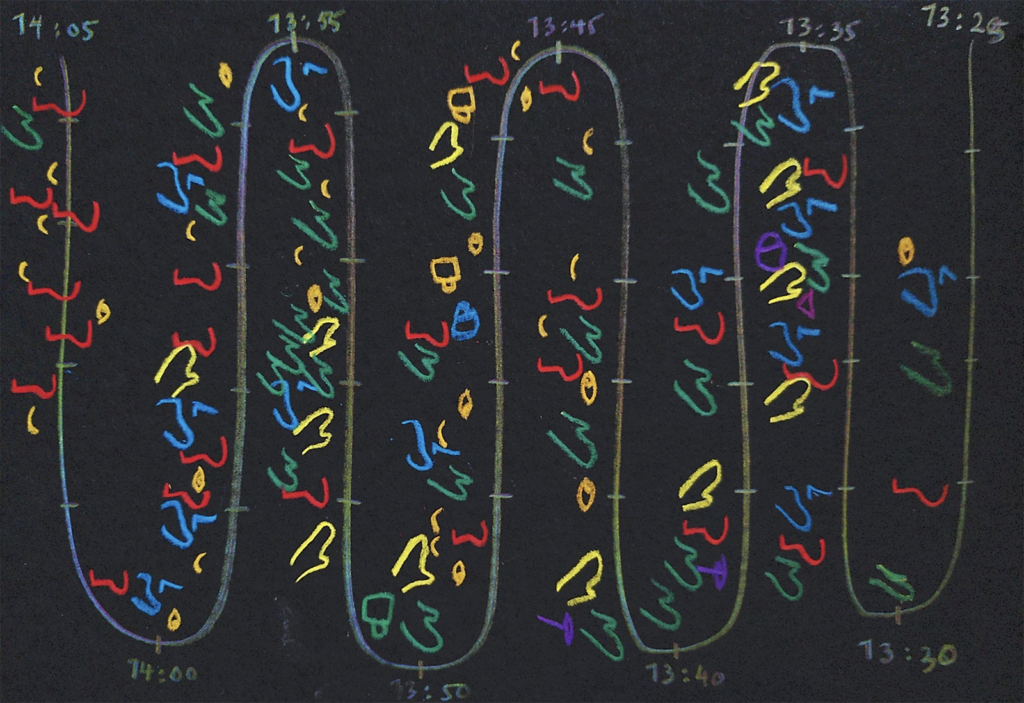 14:05
13:55
13:45
13:35
13:25
14:00
13:50
13:40
13:30